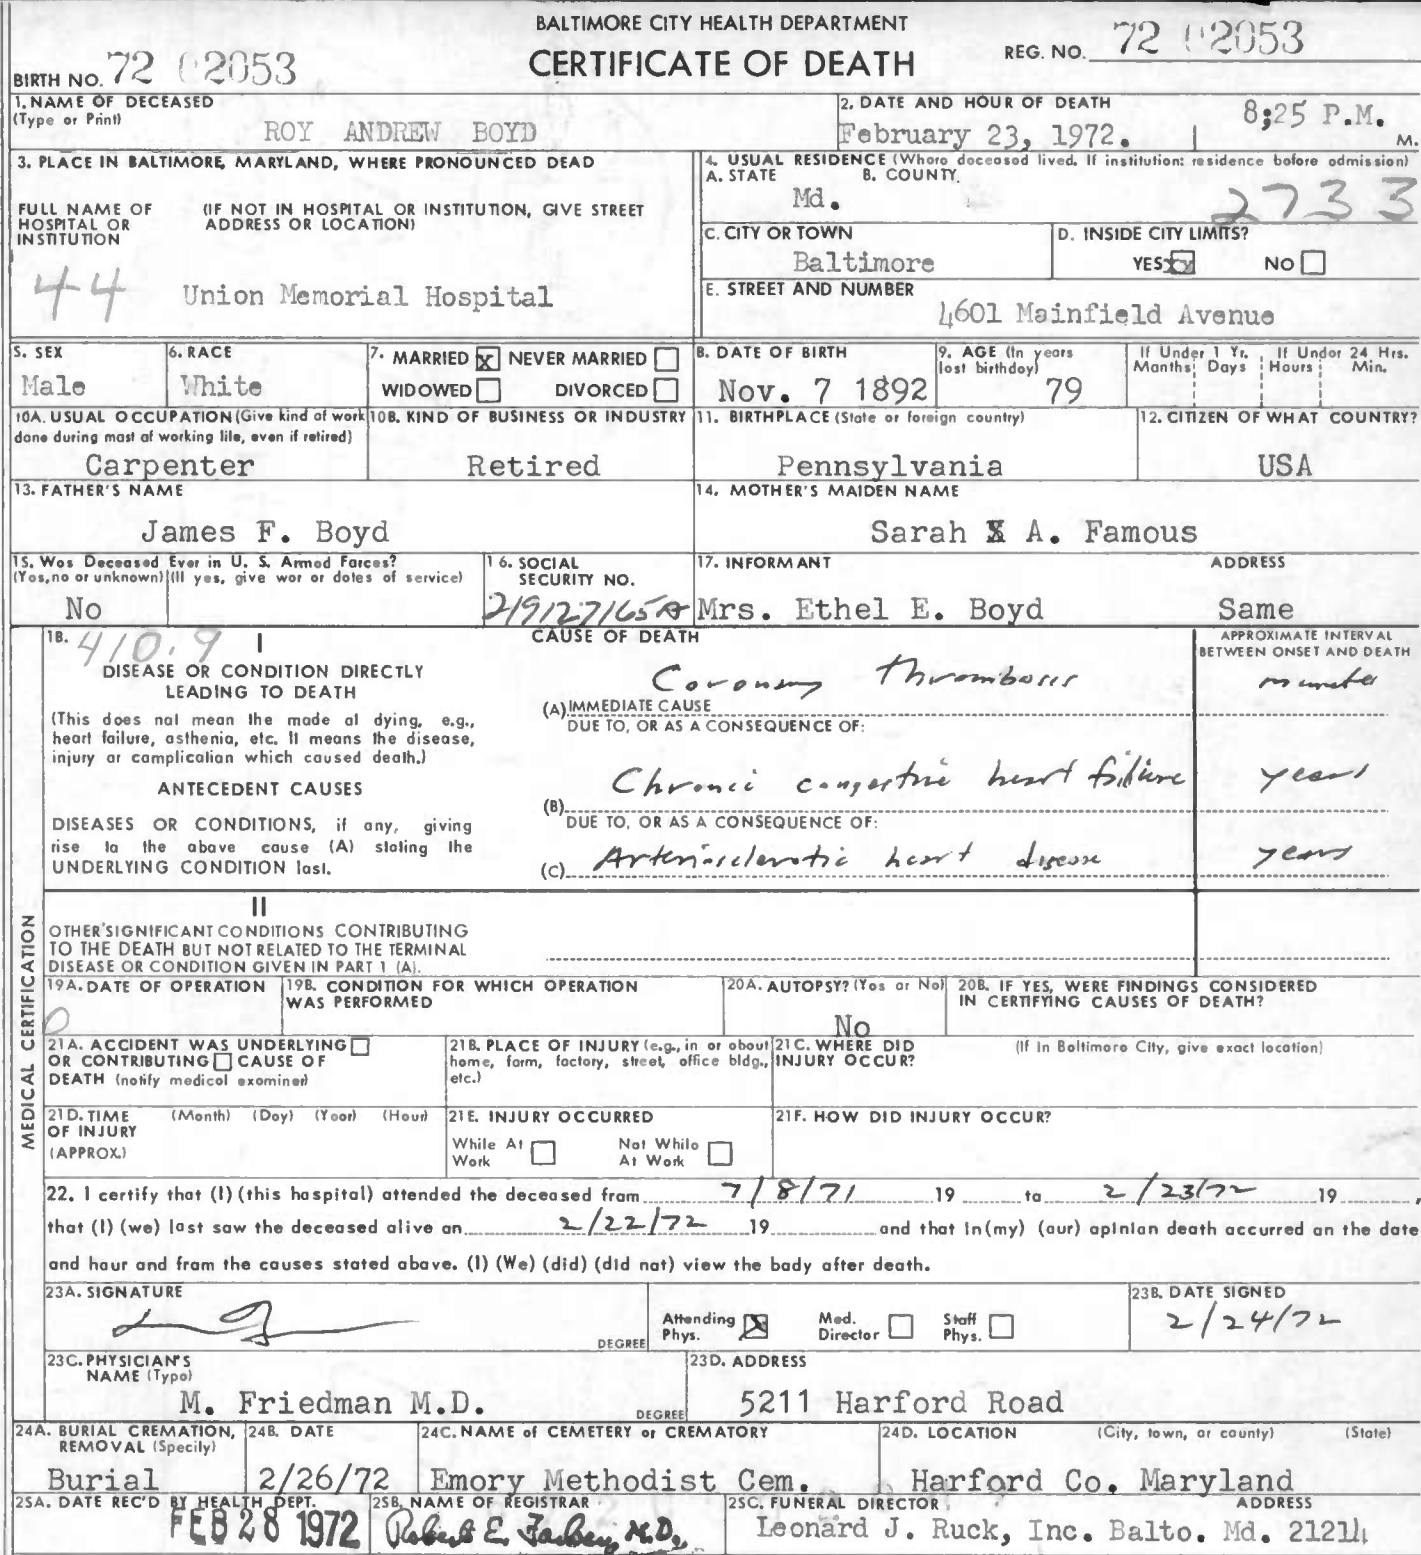 BALTIMORE CITY HEALTH DEPARTMENT
CERTIFICATE OF DEATH
REG. NO. 72 02053
BIRTH NO. 72 02053
1. NAME OF DECEASED
(Type or Print)
ROY ANDREW BOYD
2. DATE AND HOUR OF DEATH
February 23, 1972. 8;25 P.M. M.
3. PLACE IN BALTIMORE, MARYLAND, WHERE PRONOUNCED DEAD
FULL NAME OF HOSPITAL OR INSTITUTION
(IF NOT IN HOSPITAL OR INSTITUTION, GIVE STREET ADDRESS OR LOCATION)
44 Union Memorial Hospital
4. USUAL RESIDENCE (Where deceased lived. If institution: residence before admission)
A. STATE B. COUNTY
Md. 2733
C. CITY OR TOWN
Baltimore
D. INSIDE CITY LIMITS?
YES NO
E. STREET AND NUMBER
4601 Mainfield Avenue
5. SEX
Male
6. RACE
White
7. MARRIED X NEVER MARRIED
WIDOWED DIVORCED
8. DATE OF BIRTH
Nov. 7 1892
9. AGE (In years last birthday)
79
If Under 1 Yr. If Under 24 Hrs.
Months Days Hours Min.
10A. USUAL OCCUPATION (Give kind of work done during most of working life, even if retired)
Carpenter
10B. KIND OF BUSINESS OR INDUSTRY
Retired
11. BIRTHPLACE (State or foreign country)
Pennsylvania
12. CITIZEN OF WHAT COUNTRY?
USA
13. FATHER'S NAME
James F. Boyd
14. MOTHER'S MAIDEN NAME
Sarah A. Famous
15. Was Deceased Ever in U. S. Armed Forces?
(Yes, no or unknown) (If yes, give war or dates of service)
No
16. SOCIAL SECURITY NO.
219127165A
17. INFORMANT ADDRESS
Mrs. Ethel E. Boyd Same
MEDICAL CERTIFICATION
18. 410.9 I
CAUSE OF DEATH
APPROXIMATE INTERVAL
BETWEEN ONSET AND DEATH
DISEASE OR CONDITION DIRECTLY
LEADING TO DEATH
(This does not mean the mode of dying, e.g.,
heart failure, asthenia, etc. It means the disease,
injury or complication which caused death.)
ANTECEDENT CAUSES
DISEASES OR CONDITIONS, if any, giving
rise to the above cause (A) stating the
UNDERLYING CONDITION last.
Coronary Thrombosis minutes
(A) IMMEDIATE CAUSE
DUE TO, OR AS A CONSEQUENCE OF:
Chronic congestive heart failure years
(B)
DUE TO, OR AS A CONSEQUENCE OF:
(C) Arteriosclerotic heart disease years
II
OTHER SIGNIFICANT CONDITIONS CONTRIBUTING
TO THE DEATH BUT NOT RELATED TO THE TERMINAL
DISEASE OR CONDITION GIVEN IN PART 1 (A).
19A. DATE OF OPERATION
0
19B. CONDITION FOR WHICH OPERATION WAS PERFORMED
20A. AUTOPSY? (Yes or No)
No
20B. IF YES, WERE FINDINGS CONSIDERED IN CERTIFYING CAUSES OF DEATH?
21A. ACCIDENT WAS UNDERLYING
OR CONTRIBUTING CAUSE OF
DEATH (notify medical examiner)
21B. PLACE OF INJURY (e.g., in or about home, farm, factory, street, office bldg., etc.)
21C. WHERE DID INJURY OCCUR? (If In Baltimore City, give exact location)
21D. TIME OF INJURY (APPROX.) (Month) (Day) (Year) (Hour)
21E. INJURY OCCURRED
While At Work Not While At Work
21F. HOW DID INJURY OCCUR?
22. I certify that (I) (this hospital) attended the deceased from 7/8/71 19 to 2/23/72 19 ,
that (I) (we) last saw the deceased alive on 2/22/72 19 and that in (my) (our) opinion death occurred on the date
and hour and from the causes stated above. (I) (We) (did) (did not) view the body after death.
23A. SIGNATURE
DEGREE
Attending Phys. X Med. Director Staff Phys.
23B. DATE SIGNED
2/24/72
23C. PHYSICIAN'S NAME (Type)
M. Friedman M.D. DEGREE
23D. ADDRESS
5211 Harford Road
24A. BURIAL CREMATION, REMOVAL (Specify)
Burial
24B. DATE
2/26/72
24C. NAME of CEMETERY or CREMATORY
Emory Methodist Cem.
24D. LOCATION (City, town, or county) (State)
Harford Co. Maryland
25A. DATE REC'D BY HEALTH DEPT.
FEB 28 1972
25B. NAME OF REGISTRAR
Robert E. Farber, M.D.
25C. FUNERAL DIRECTOR ADDRESS
Leonard J. Ruck, Inc. Balto. Md. 21214